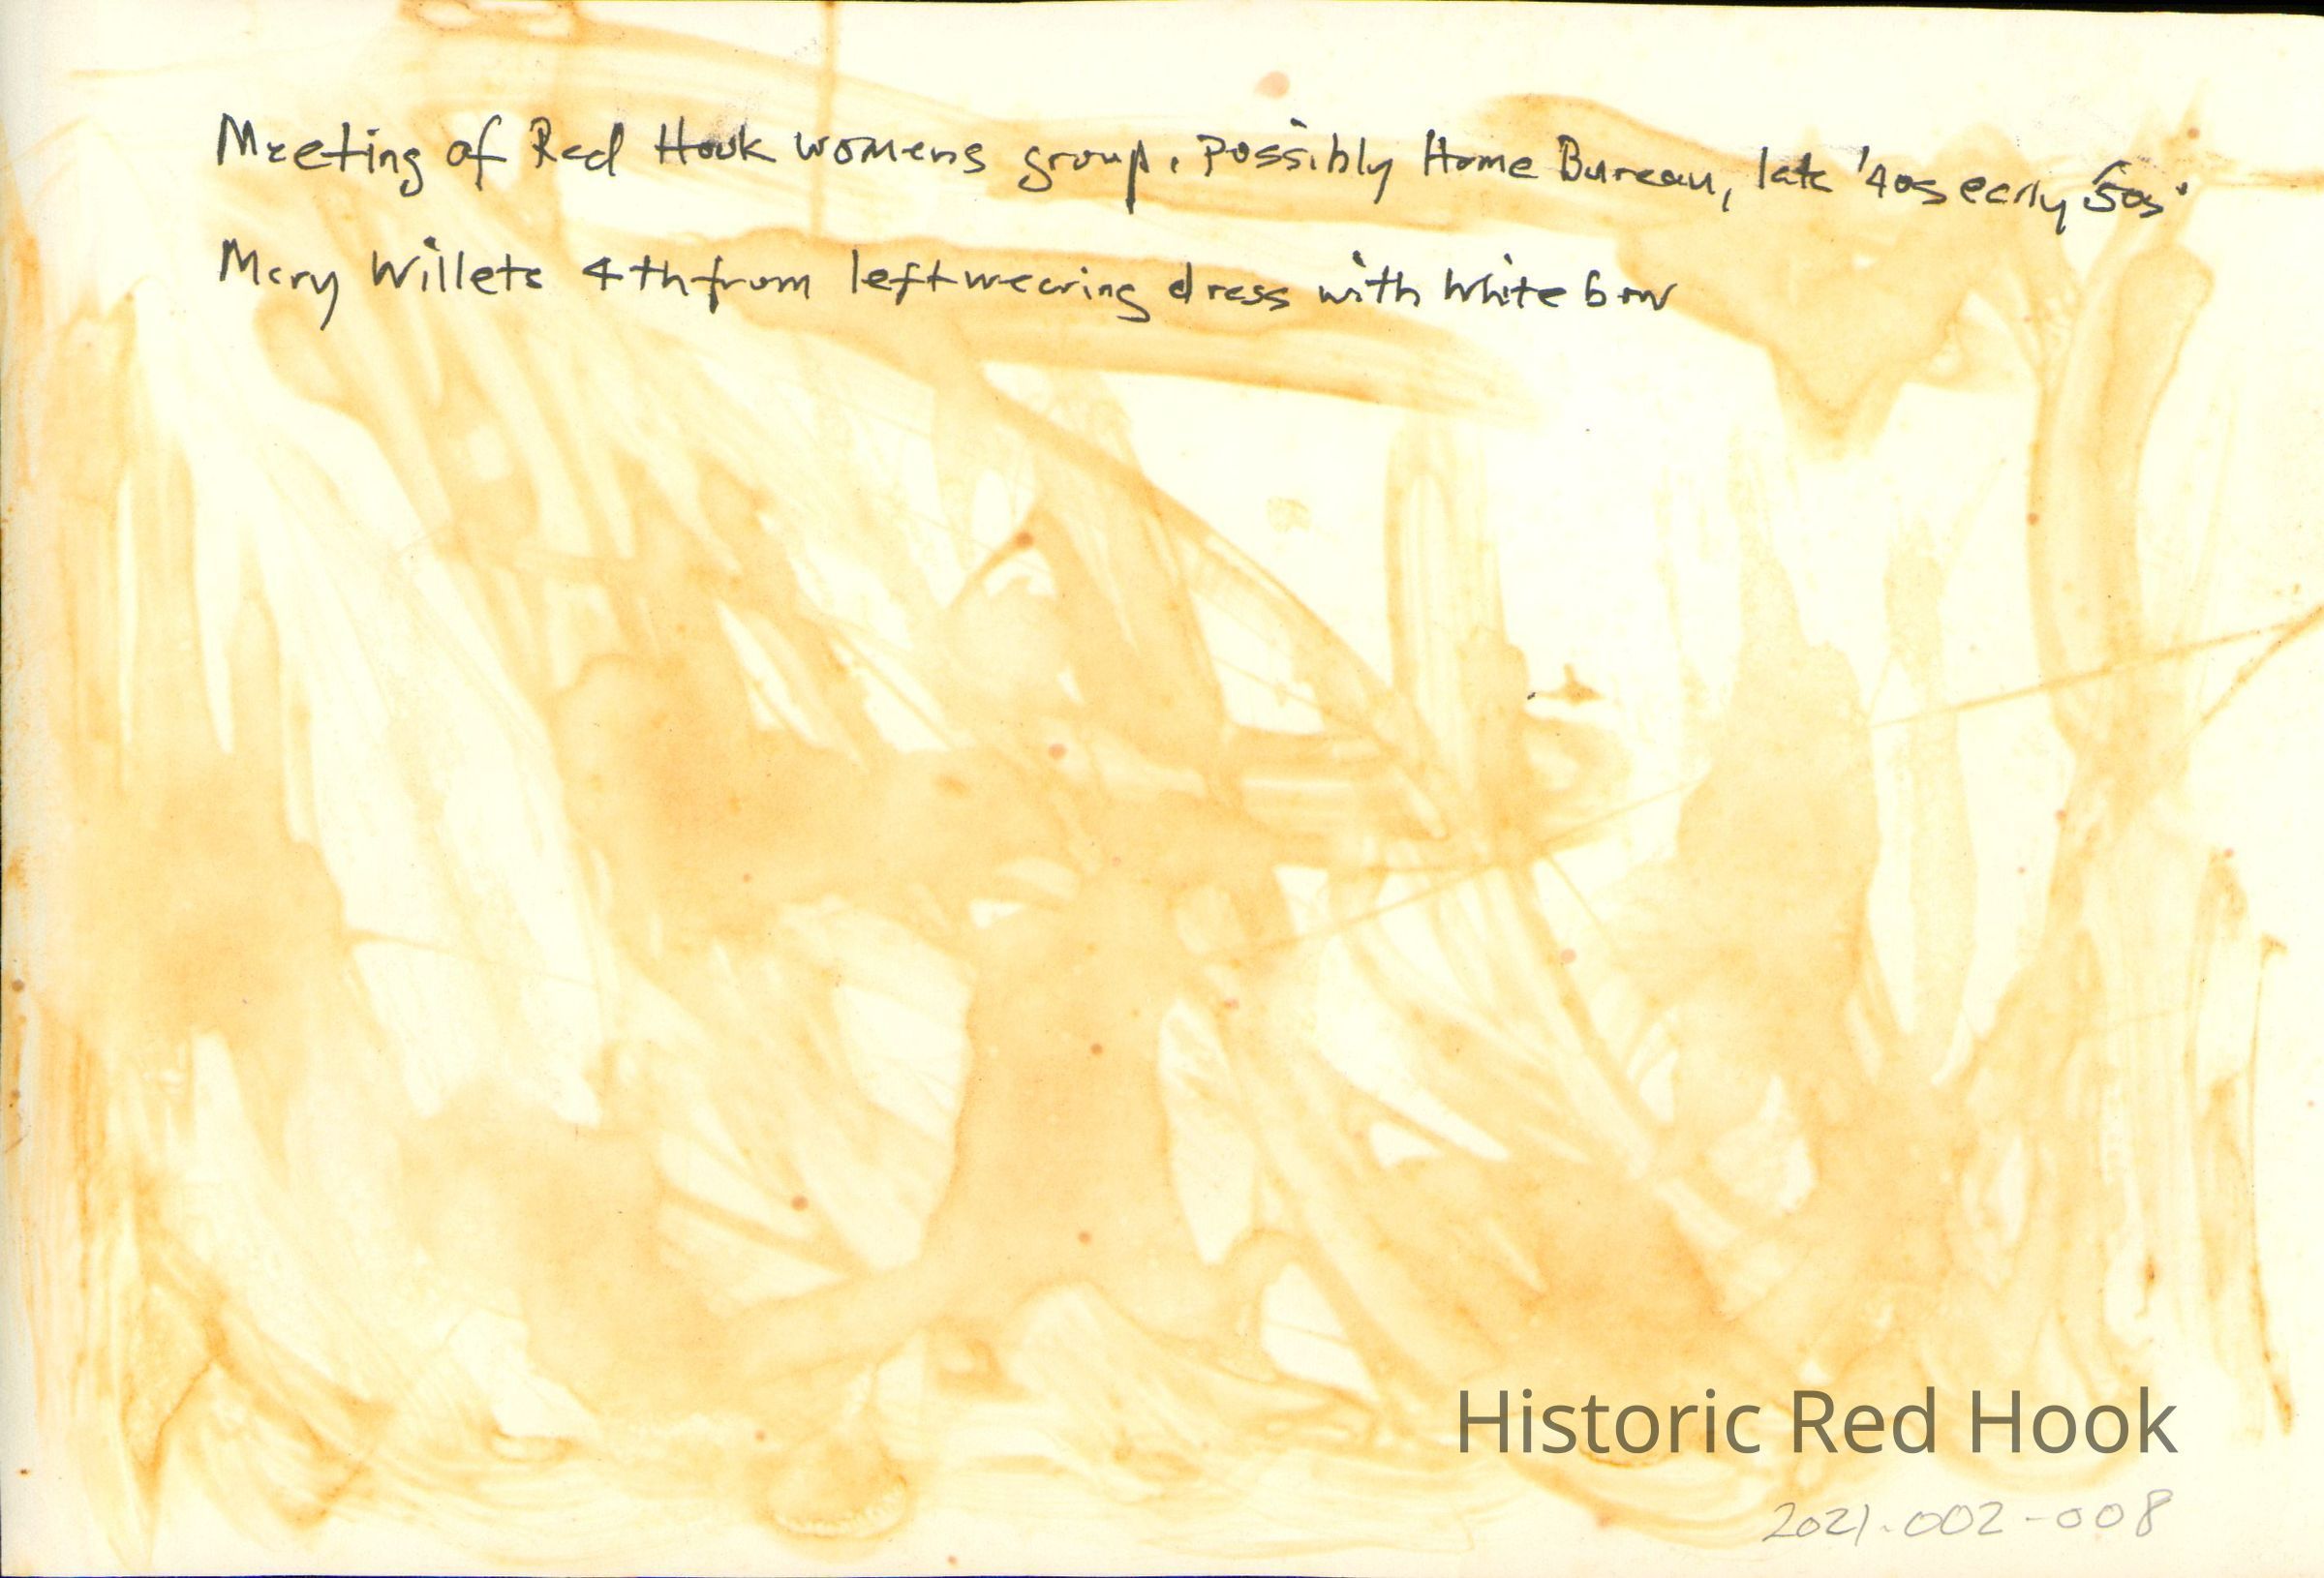 Meeting of Red Hook womens group. Possibly Home Bureau, late '40s early 50s.
Mary Willets 4th from left wearing dress with white bow
Historic Red Hook
2021.002-008